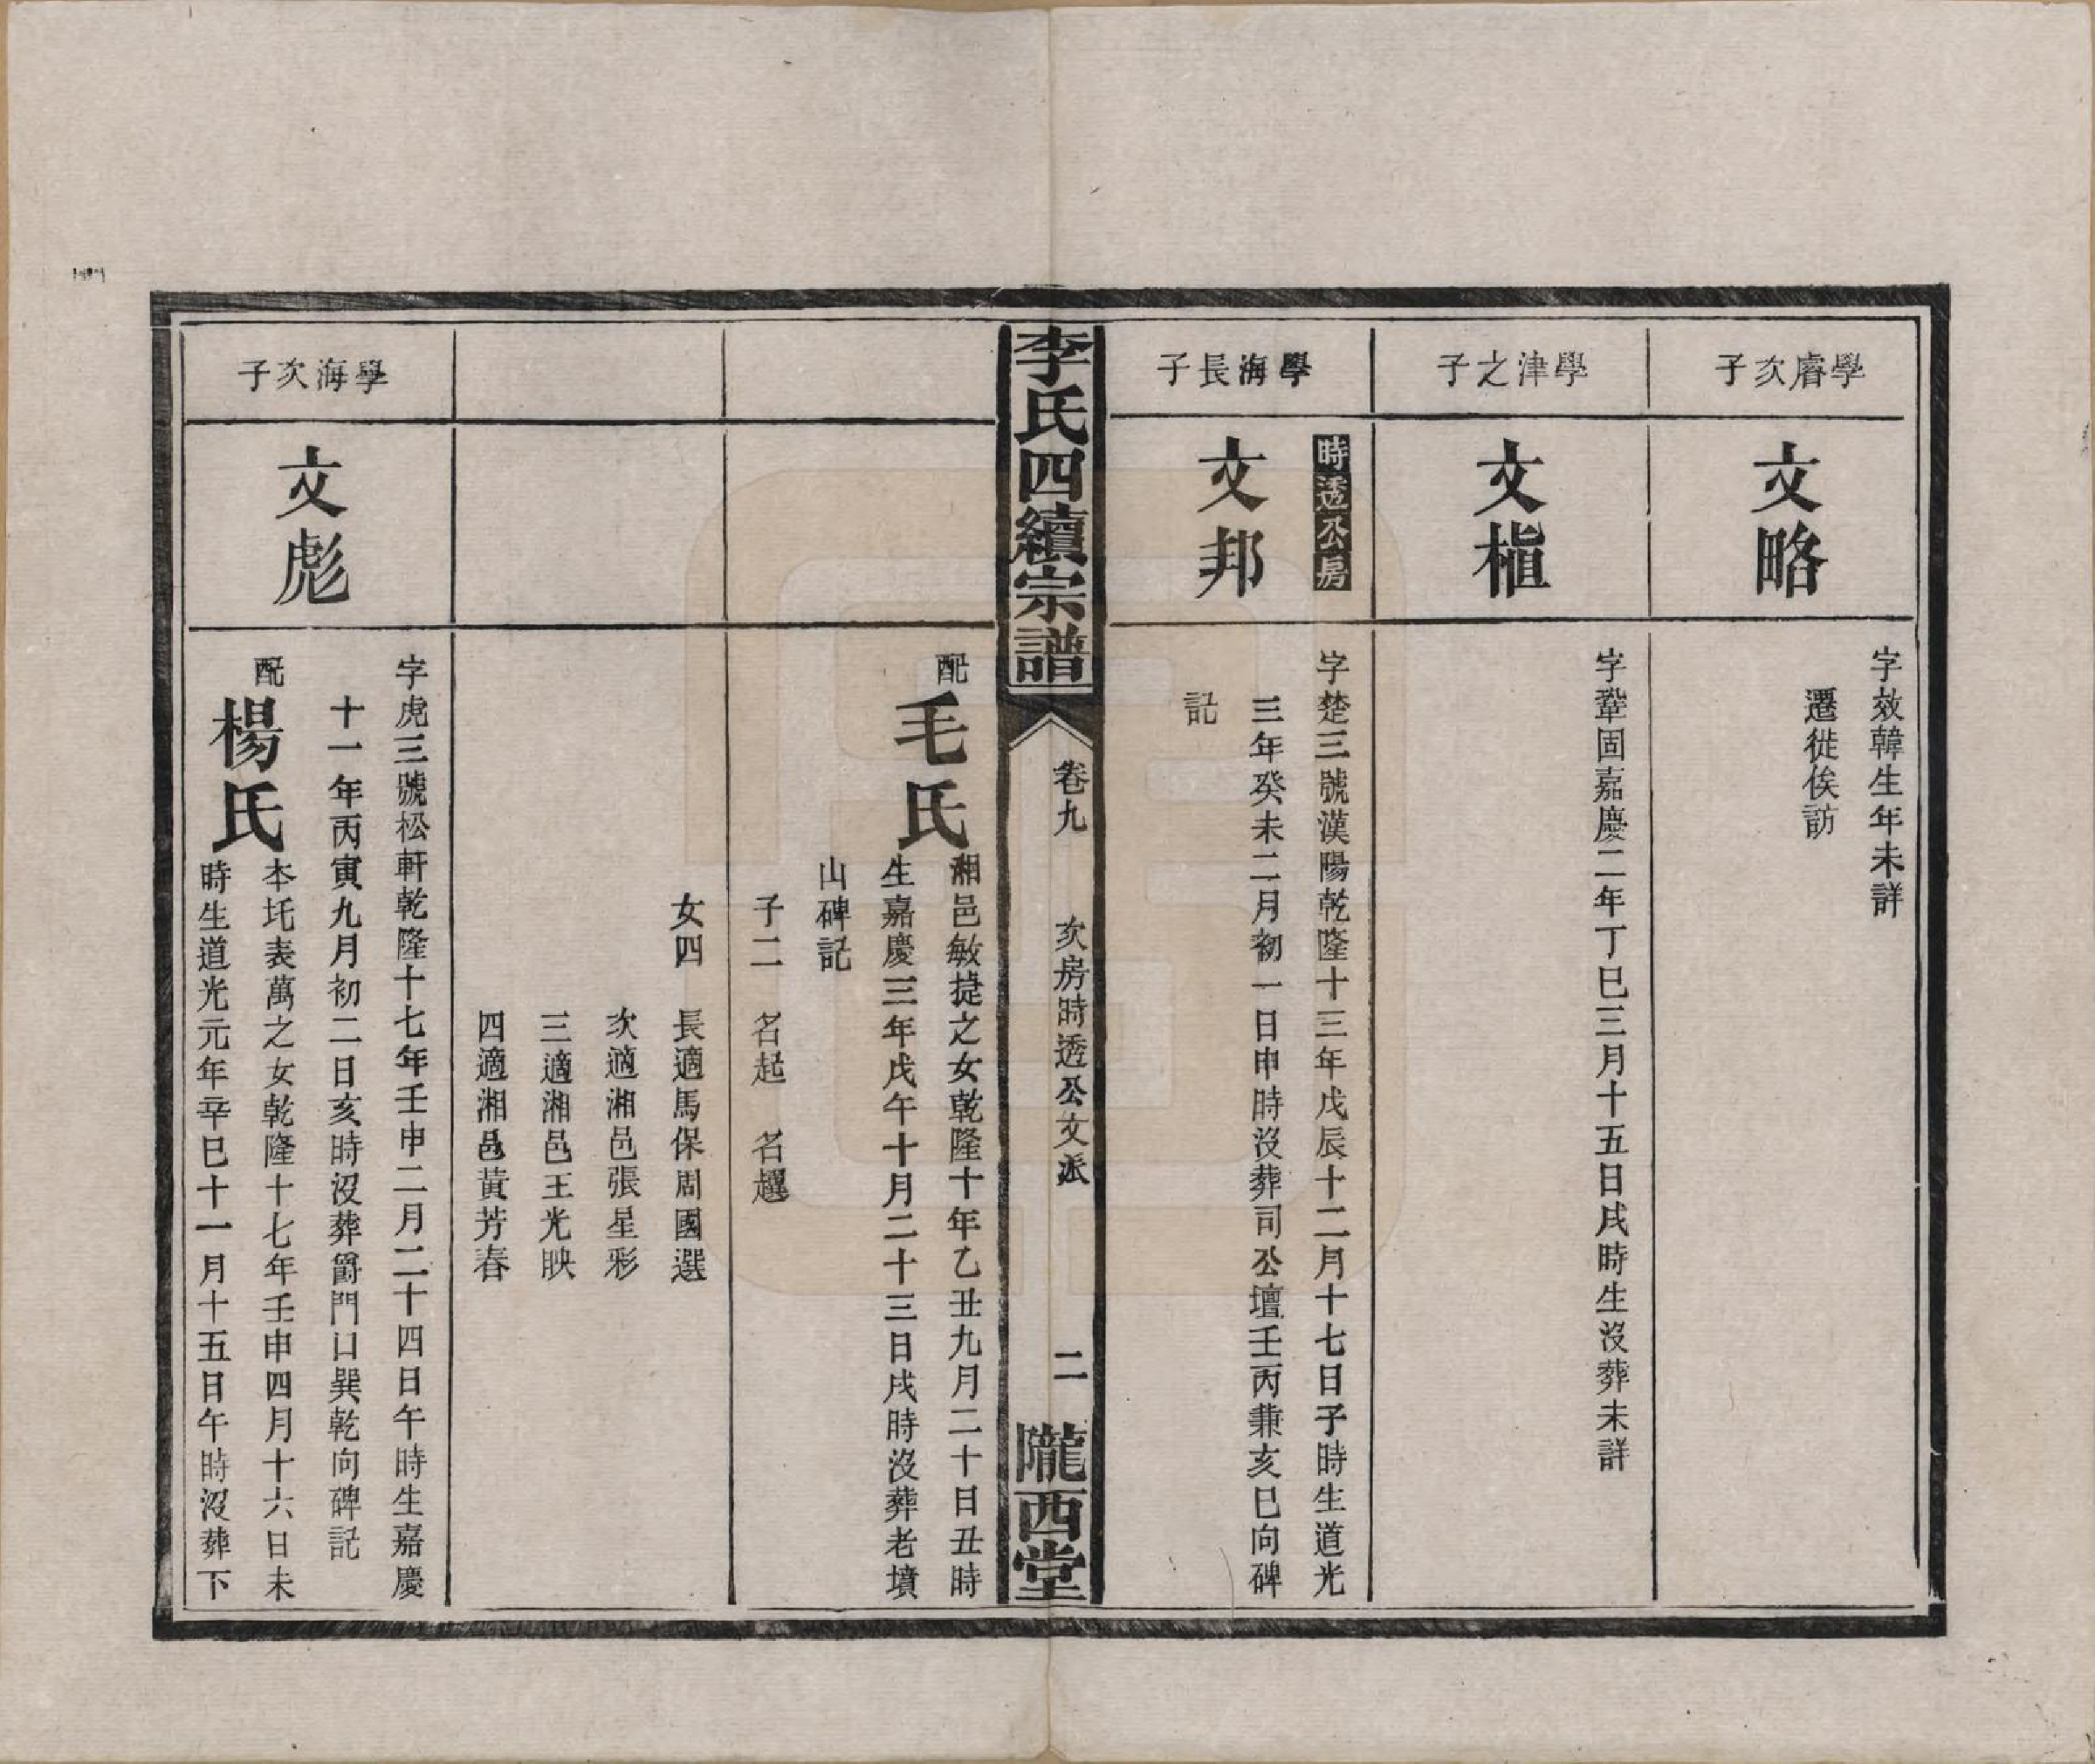 學睿次子
文略
字效韓生年未詳
遷徙俟訪
學津之子
文植
字鞏固嘉慶二年丁巳三月十五日戌時生沒葬未詳
學海長子
時透公房
文邦
字楚三號漢陽乾隆十三年戊辰十二月十七日子時生道光
三年癸未二月初一日申時沒葬司公壇壬丙兼亥巳向碑
記
李氏四續宗譜
卷九
次房時透公文派
二
隴西堂
配
毛氏
湘邑敏捷之女乾隆十年乙丑九月二十日丑時
生嘉慶三年戊午十月二十三日戌時沒葬老墳
山碑記
子二 名起 名趯
女四 長適馬保周國選
次適湘邑張星彩
三適湘邑王光映
四適湘邑黃芳春
學海次子
文彪
字虎三號松軒乾隆十七年壬申二月二十四日午時生嘉慶
十一年丙寅九月初二日亥時沒葬爵門口巽乾向碑記
配
楊氏
本圫表萬之女乾隆十七年壬申四月十六日未
時生道光元年辛巳十一月十五日午時沒葬下